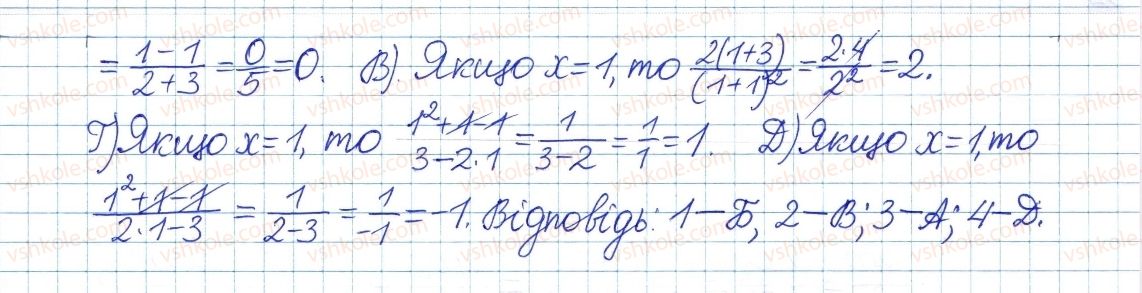 = (1-1)/(2+3) = 0/5 = 0. В). Якщо x=1, то 2(1+3)/(1+1)² = 2·4/2² = 2.
Г) Якщо x=1, то (1²+1-1)/(3-2·1) = 1/(3-2) = 1/1 = 1. Д) Якщо x=1, то
(1²+1-1)/(2·1-3) = 1/(2-3) = 1/-1 = -1. Відповідь: 1-Б, 2-В; 3-А; 4-Д.